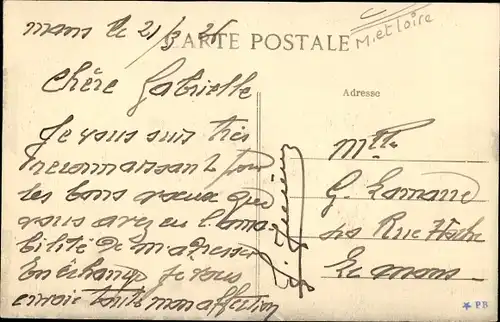 mans le 21/3 25
M. et Loire
CARTE POSTALE
Chère Gabrielle
Adresse
Je vous suis très
reconnaissant pour
les bons voeux que
vous avez eu l'ama
bilité de m'adresser
En échange je vous
envoie toute mon affection
Mlle
G.
Rue
Le mans
* PB